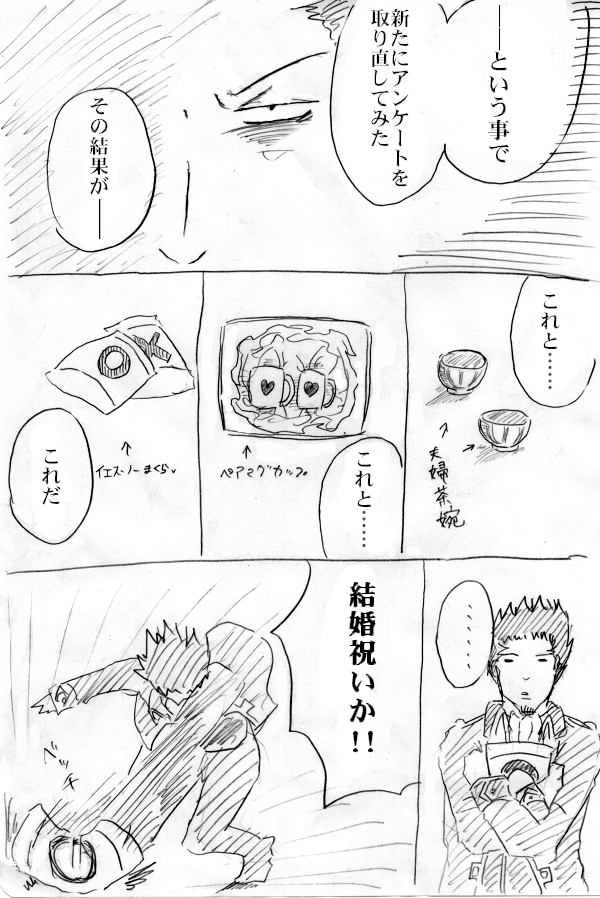 ――という事で
新たにアンケートを
取り直してみた
その結果が――
これと……
夫婦茶碗
これと……
ペアマグカップ
これだ
イエス・ノーまくら
……
結婚祝いか!!
ベッチ